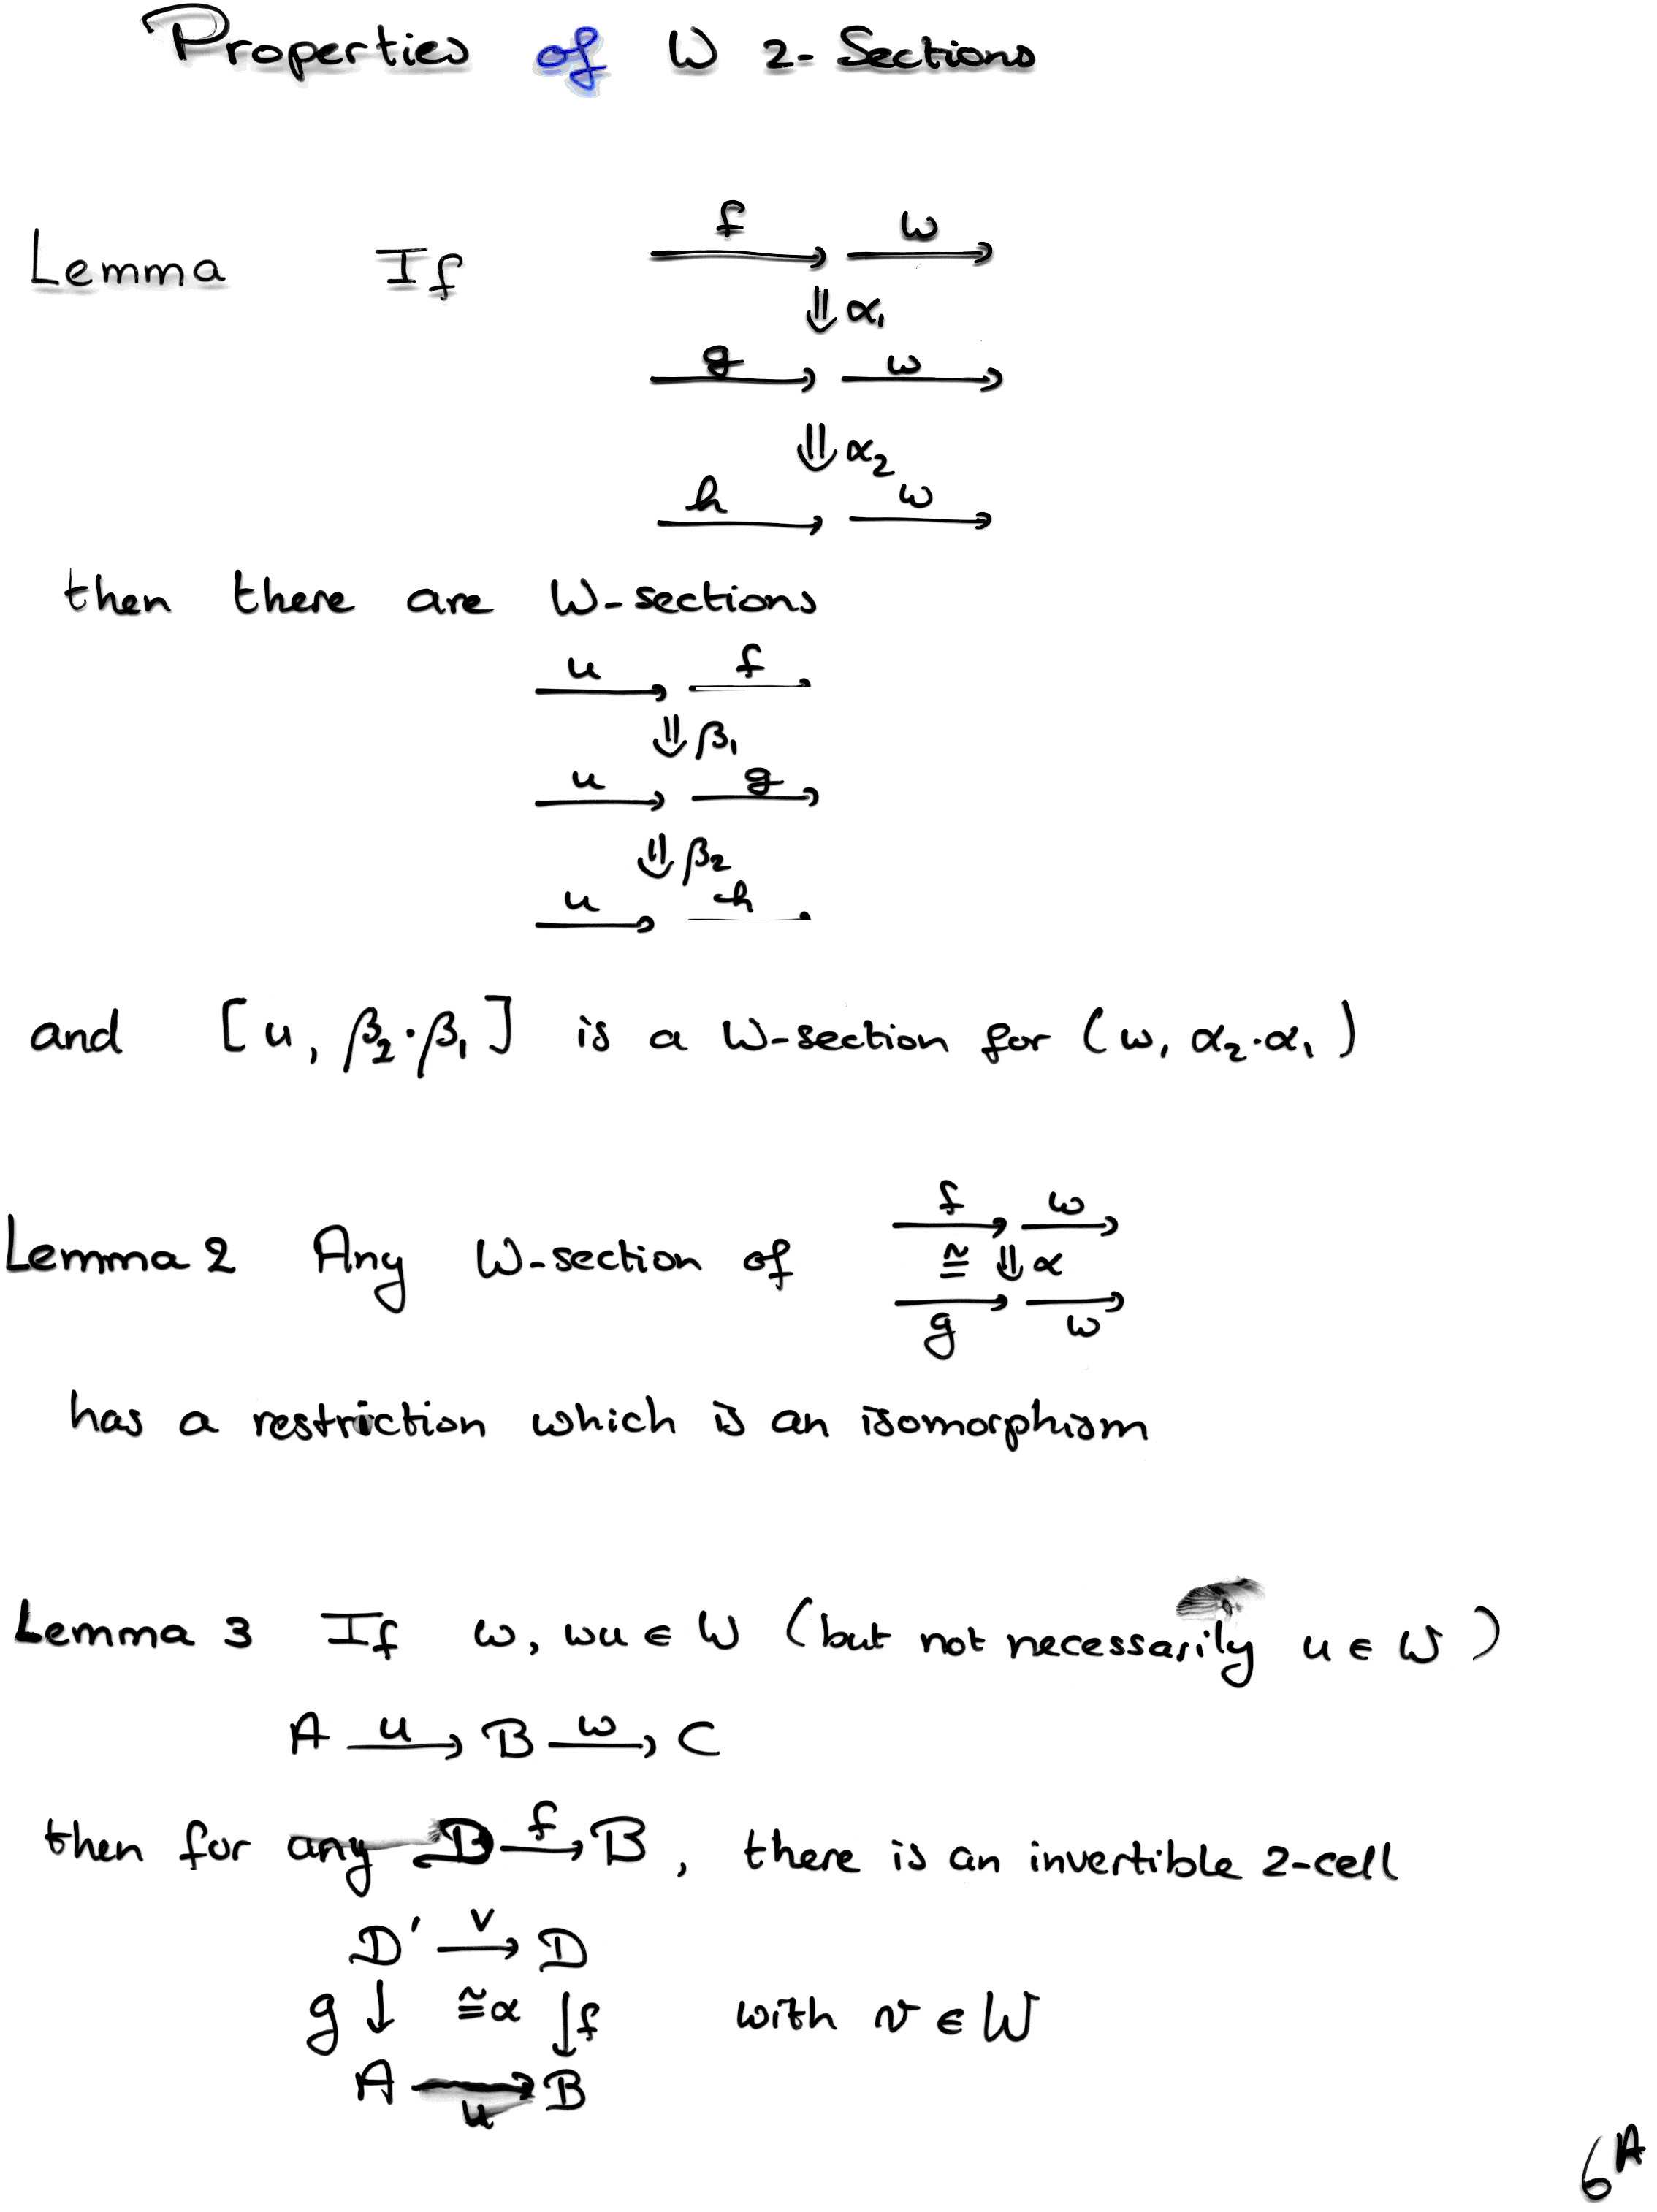 Properties of W 2-Sections
f w
Lemma If
⇓ α₁
g w
⇓ α₂
h w
then there are W-sections
u f
⇓ β₁
u g
⇓ β₂
u h
and [u, β₂·β₁] is a W-section for (w, α₂·α₁)
f w
Lemma 2 Any W-section of ≅ ⇓ α
g w
has a restriction which is an isomorphism
Lemma 3 If w, wu ∈ W (but not necessarily u ∈ W)
A →u B →w C
then for any D →f B, there is an invertible 2-cell
D' →v D
g ↓ ≅α ↓ f with v ∈ W
A → B
u
6A